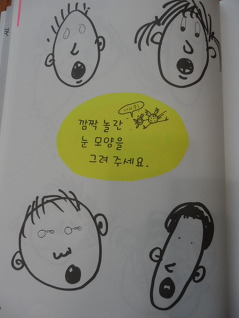 깜짝 놀란
눈 모양을
그려 주세요.